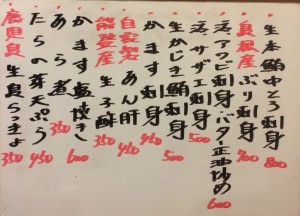 生本鮪中とろ刺身 800
良根産 ぶり刺身 700
活アワビ刺身 バター正油炒め 600
活サザエ刺身 500
生かじき鮪刺身 500
かます刺身 450
自家製 あん肝 450
能登産 生子酢 350
かます塩焼き 600
あら煮 350
たらの芽天ぷら 450
鹿児島 生島らっきょ 350